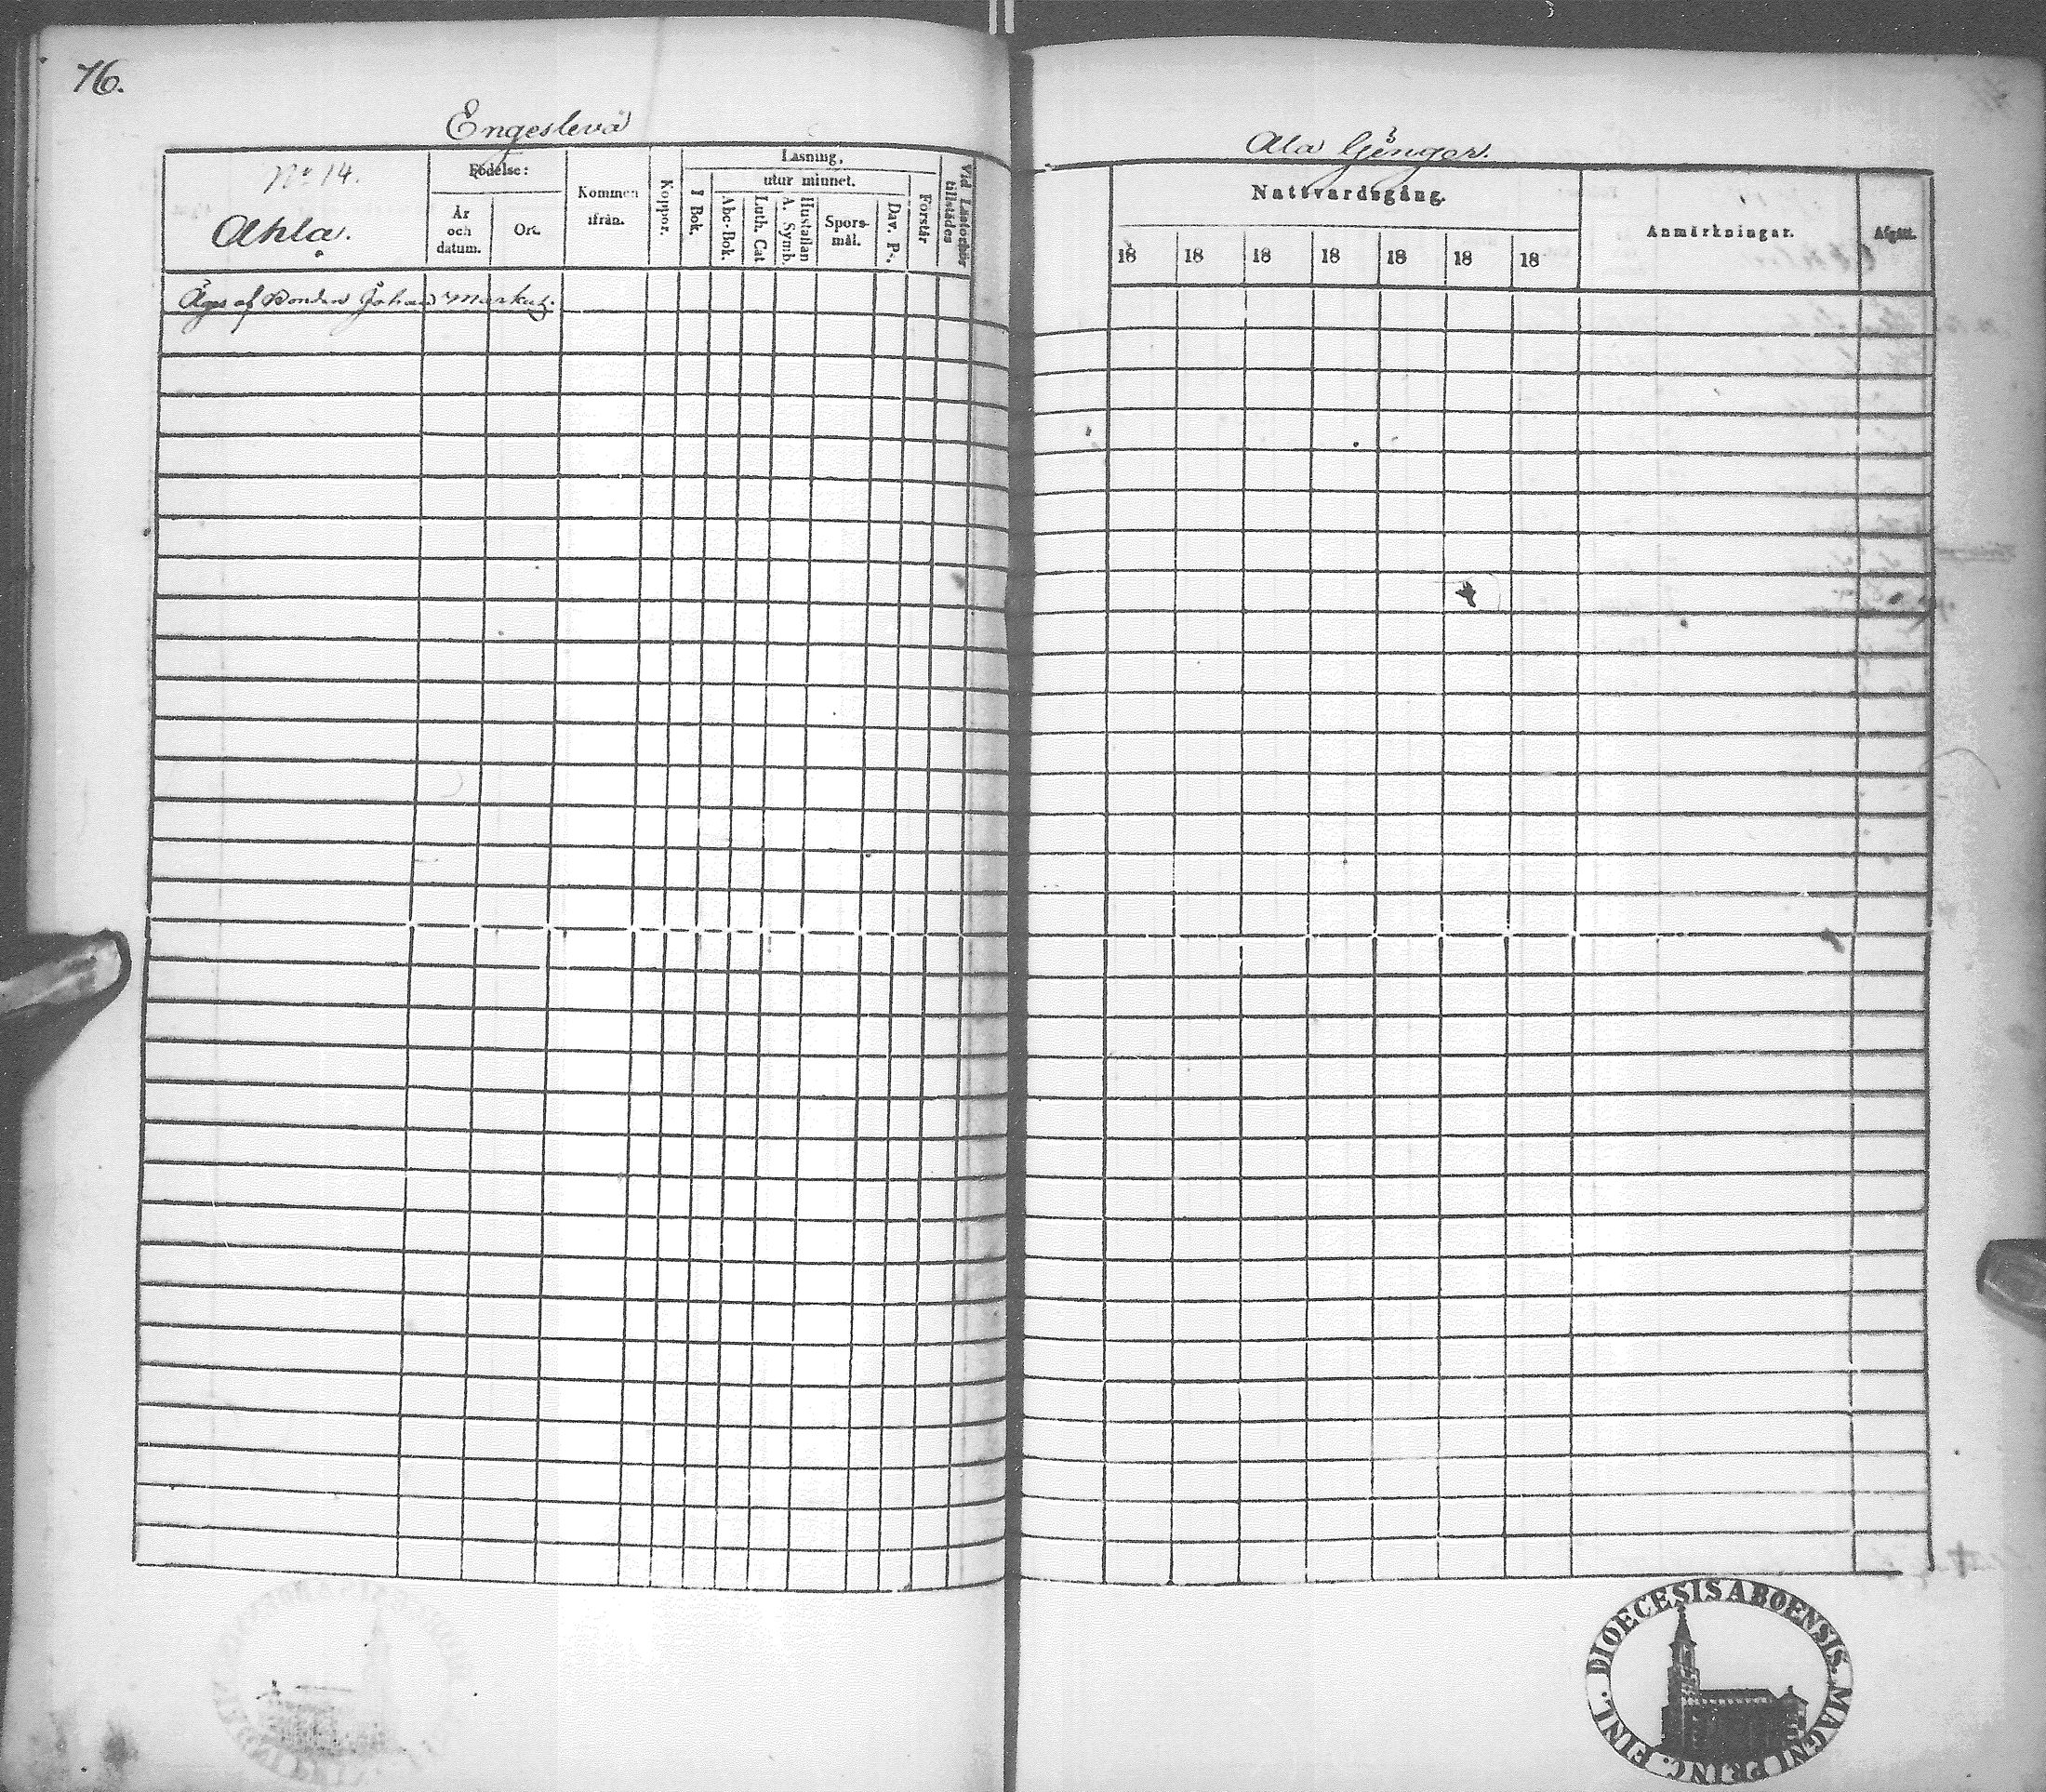 76.
Engeslevä
Ala Gånger.
No 14.
Ahla.
Födelse:
År och datum.
Ort.
Kommen ifrån.
Koppor.
Läsning,
I Bok.
utur minnet.
Abc-Bok.
Luth. Cat
Hustaflan A. Symb.
Spörs-mål.
Dav. Ps.
Förstår
Vid Läseförhör tillstädes
Nattvardsgång.
18 18 18 18 18 18 18
Anmärkningar.
Afgått.
Äges af Bonden Johan Markus.
DIOECESIS ABOENSIS. MAGNI PRINC. FINL.